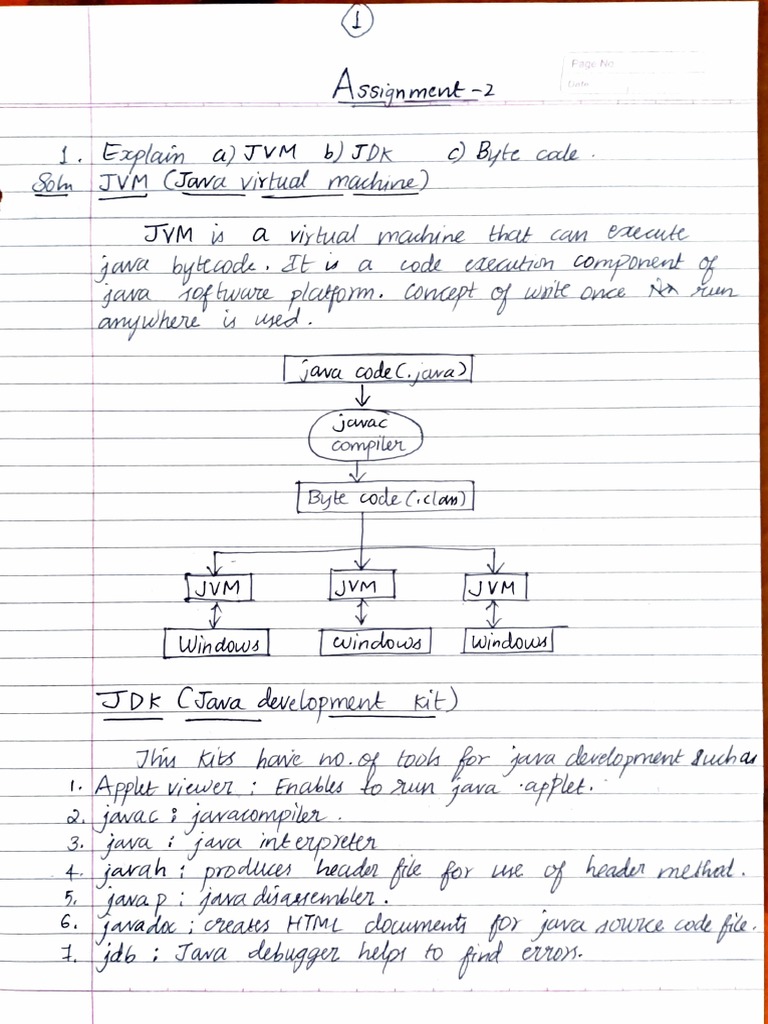 1
Assignment-2
Page No
Date
1. Explain a) JVM b) JDK c) Byte code.
Soln JVM (Java virtual machine)
JVM is a virtual machine that can execute
java bytecode. It is a code execution component of
java software platform. concept of write once run
anywhere is used.
java code (.java)
javac
compiler
Byte code (.class)
JVM JVM JVM
Windows windows windows
JDK (Java development kit)
This kits have no. of tools for java development such as
1. Applet viewer : Enables to run java applet.
2. javac : javacompiler.
3. java : java interpreter
4. javah : produces header file for use of header method.
5. javap : java disassembler.
6. javadoc : creates HTML documents for java source code file.
7. jdb : Java debugger helps to find errors.